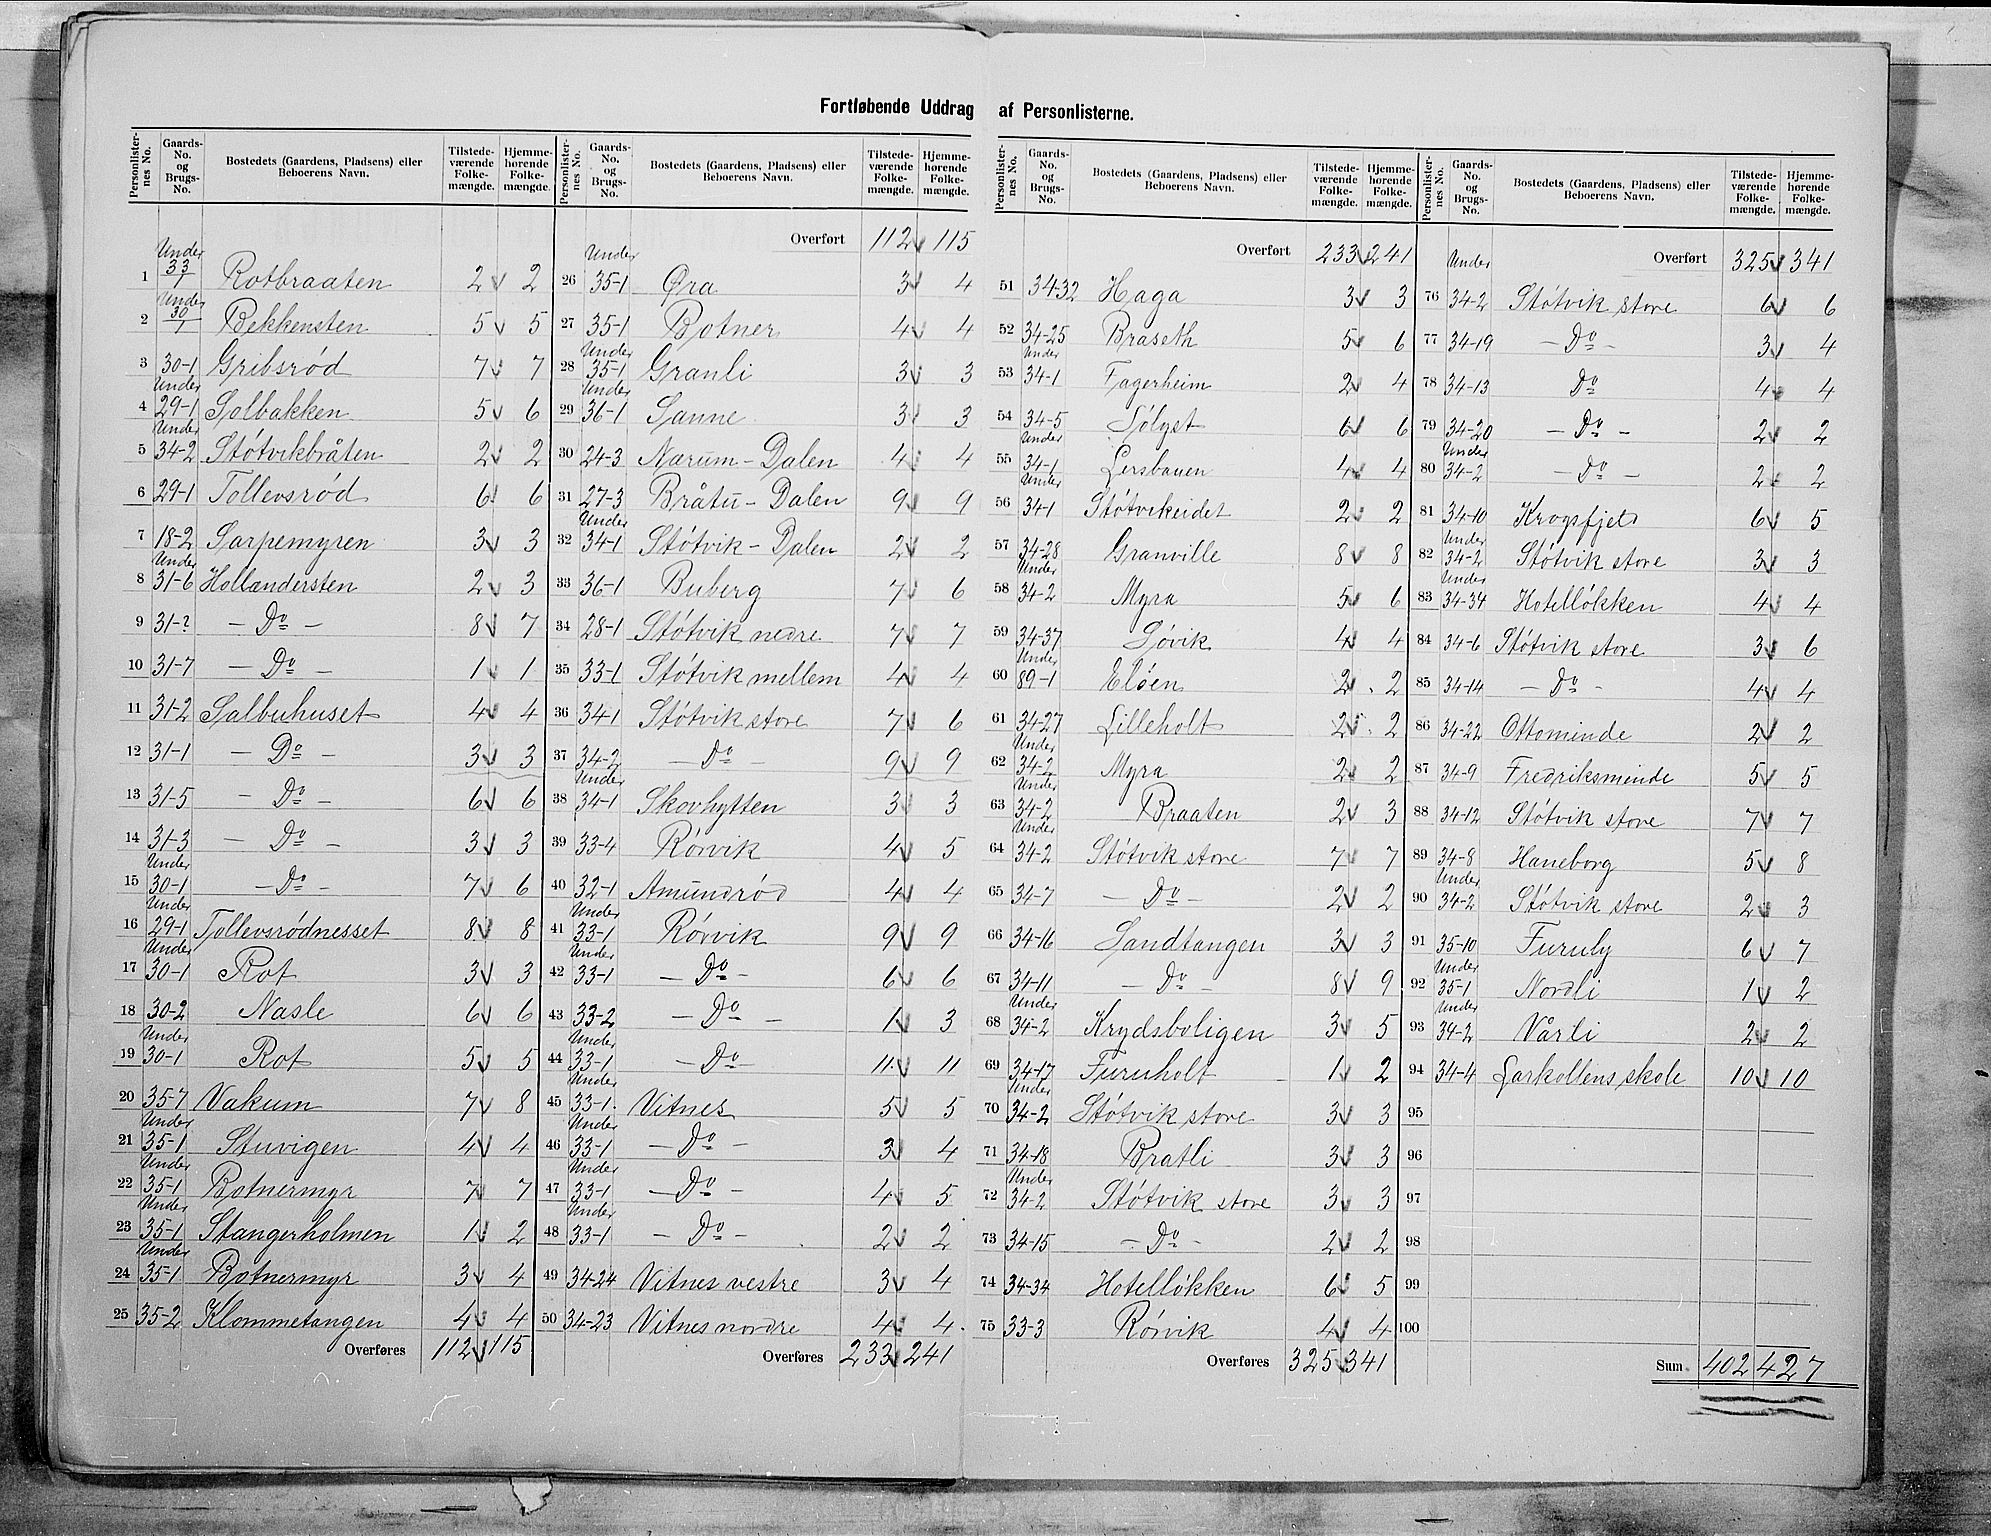 Fortløbende Uddrag af Personlisternes.
Personlister-nes No. Gaards-No. og Brugs-No. Bostedets (Gaardens, Pladsens) eller Beboerens Navn. Tilstede-værende Folke-mængde. Hjemme-hørende Folke-mængde.
1 Under 33/1 Rotbraaten 2 2
2 Under 30/1 Bekkensten 5 5
3 30-1 Gribsrød 7 7
4 Under 29-1 Solbakken 5 6
5 Under 34-2 Støtvikbråten 2 2
6 29-1 Tollevsrød 6 6
7 18-2 Sarpemyren 3 3
8 Under 31-6 Hollandersten 2 3
9 31-? — Do — 8 7
10 31-7 — Do — 1 1
11 31-2 Salbuhuset 4 4
12 31-1 — Do — 3 3
13 31-5 — Do — 6 6
14 31-3 — Do — 3 3
15 Under 30-1 — Do — 7 6
16 Under 29-1 Tollevsrødnesset 8 8
17 Under 30-1 Rot 3 3
18 30-2 Nasle 6 6
19 Under 30-1 Rot 5 5
20 35-7 Vakum 7 8
21 Under 35-1 Stuvigen 4 4
22 Under 35-1 Botnermyr 7 7
23 Under 35-1 Stangerholmen 1 2
24 Under 35-1 Botnermyr 3 4
25 35-2 Klommetangen 4 4
Overføres 112 115
Personlister-nes No. Gaards-No. og Brugs-No. Bostedets (Gaardens, Pladsens) eller Beboerens Navn. Tilstede-værende Folke-mængde. Hjemme-hørende Folke-mængde.
Overført 112 115
26 Under 35-1 Øra 3 4
27 35-1 Botner 4 4
28 Under 35-1 Granli 3 3
29 Under 36-1 Sanne 3 3
30 24-3 Nærum-Dalen 4 4
31 27-3 Bråtu-Dalen 9 9
32 Under 34-1 Støtvik-Dalen 2 2
33 36-1 Buberg 7 6
34 28-1 Støtvik nedre 7 7
35 33-1 Støtvik mellem 4 4
36 34-1 Støtvik store 7 6
37 34-2 — Do — 9 9
38 Under 34-1 Skovhytten 3 3
39 33-4 Rørvik 4 5
40 32-1 Amundrød 4 4
41 Under 33-1 Rørvik 9 9
42 Under 33-1 — Do — 6 6
43 33-2 — Do — 1 3
44 Under 33-1 — Do — 11 11
45 Under 33-1 Vitnes 5 5
46 Under 33-1 — Do — 3 4
47 Under 33-1 — Do — 4 5
48 Under 33-1 — Do — 2 2
49 34-24 Vitnes vestre 3 4
50 34-23 Vitnes nordre 4 4
Overføres 233 241
Personlister-nes No. Gaards-No. og Brugs-No. Bostedets (Gaardens, Pladsens) eller Beboerens Navn. Tilstede-værende Folke-mængde. Hjemme-hørende Folke-mængde.
Overført 233 241
51 34-32 Haga 3 3
52 34-25 Braseth 5 6
53 Under 34-1 Fagerheim 2 4
54 34-5 Sølyst 6 6
55 Under 34-1 Lersbauen 4 4
56 Under 34-1 Støtvikeidet 2 2
57 34-28 Granville 8 8
58 Under 34-2 Myra 5 6
59 34-37 Søvik 4 4
60 Under 89-1 Eløen 2 2
61 34-27 Lilleholt 2 2
62 Under 34-2 Myra 2 2
63 Under 34-2 Braaten 2 3
64 Under 34-2 Støtvik store 7 7
65 34-7 — Do — 2 2
66 34-16 Sandtangen 3 3
67 34-11 — Do — 8 9
68 Under 34-2 Krydsboligen 3 5
69 34-17 Furuholt 1 2
70 Under 34-2 Støtvik store 3 3
71 34-18 Bratli 3 3
72 Under 34-2 Støtvik store 3 3
73 34-15 — Do — 2 2
74 34-34 Hotelløkken 6 5
75 33-3 Rørvik 4 4
Overføres 325 341
Personlister-nes No. Gaards-No. og Brugs-No. Bostedets (Gaardens, Pladsens) eller Beboerens Navn. Tilstede-værende Folke-mængde. Hjemme-hørende Folke-mængde.
Overført 325 341
76 Under 34-2 Støtvik store 6 6
77 34-19 — Do — 3 4
78 34-13 Do 4 4
79 34-20 — Do — 2 2
80 Under 34-2 — Do — 2 2
81 34-10 Krogsfjeld 6 5
82 Under 34-2 Støtvik store 3 3
83 Under 34-34 Hotelløkken 4 4
84 34-6 Støtvik store 3 6
85 34-14 — Do — 4 4
86 34-22 Ottominde 2 2
87 34-9 Fredriksminde 5 5
88 34-12 Støtvik store 7 7
89 34-8 Haneborg 5 8
90 Under 34-2 Støtvik store 2 3
91 35-10 Furuly 6 7
92 Under 35-1 Nordli 1 2
93 Under 34-2 Vårli 2 2
94 34-4 Larkollens skole 10 10
95
96
97
98
99
100
Sum 402 427